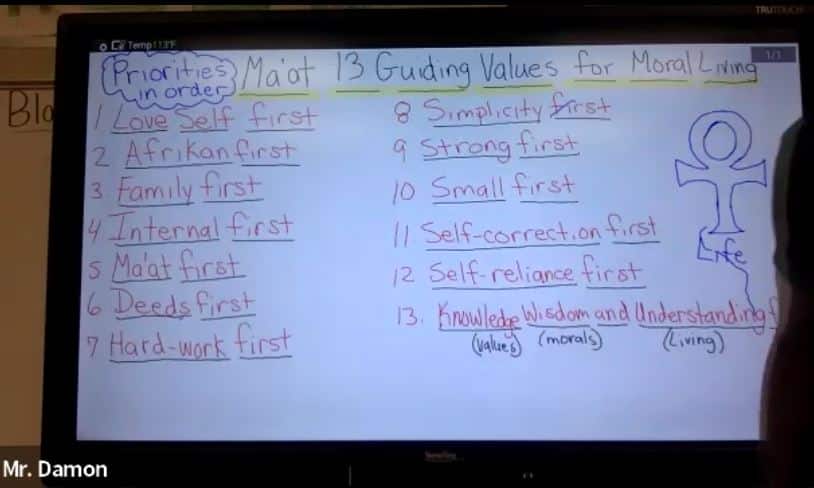 TRUTOUCH
Temp 113°F
1/1
Priorities in order
Ma'at 13 Guiding Values for Moral Living
Bla
1 Love Self first
2 Afrikan first
3 Family first
4 Internal first
5 Ma'at first
6 Deeds first
7 Hard-work first
8 Simplicity first
9 Strong first
10 Small first
11 Self-correction first
12 Self-reliance first
13. Knowledge Wisdom and Understanding f
(values) (morals) (Living)
Life
Mr. Damon